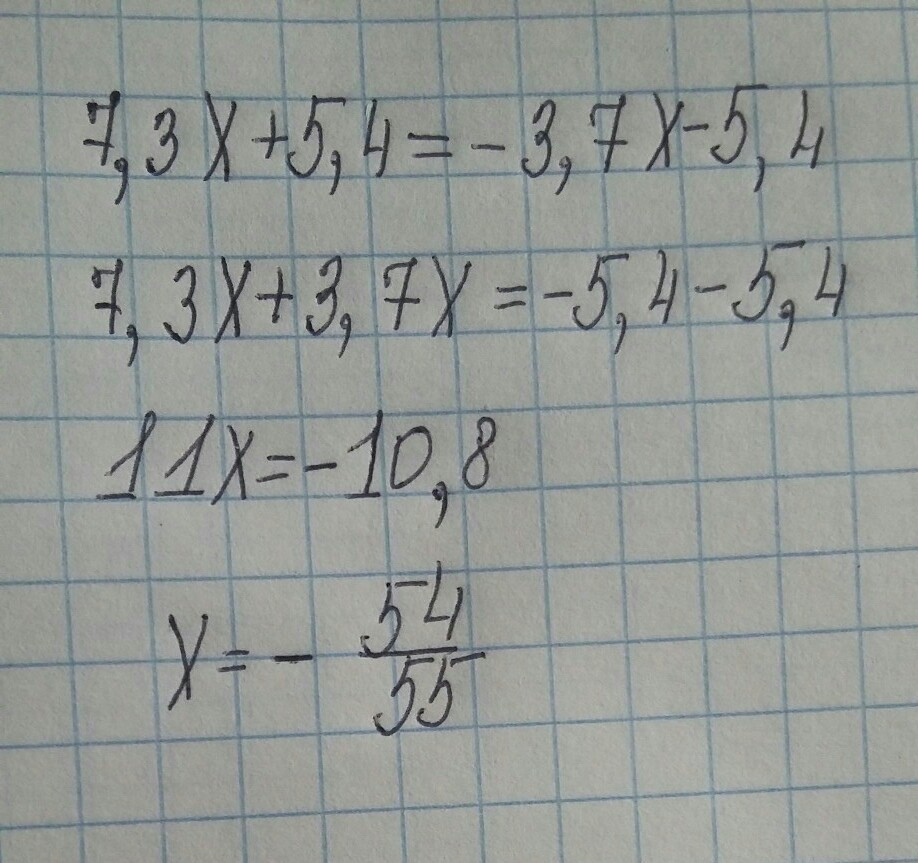 7,3x+5,4=-3,7x-5,4
7,3x+3,7x=-5,4-5,4
11x=-10,8
x=-54/55